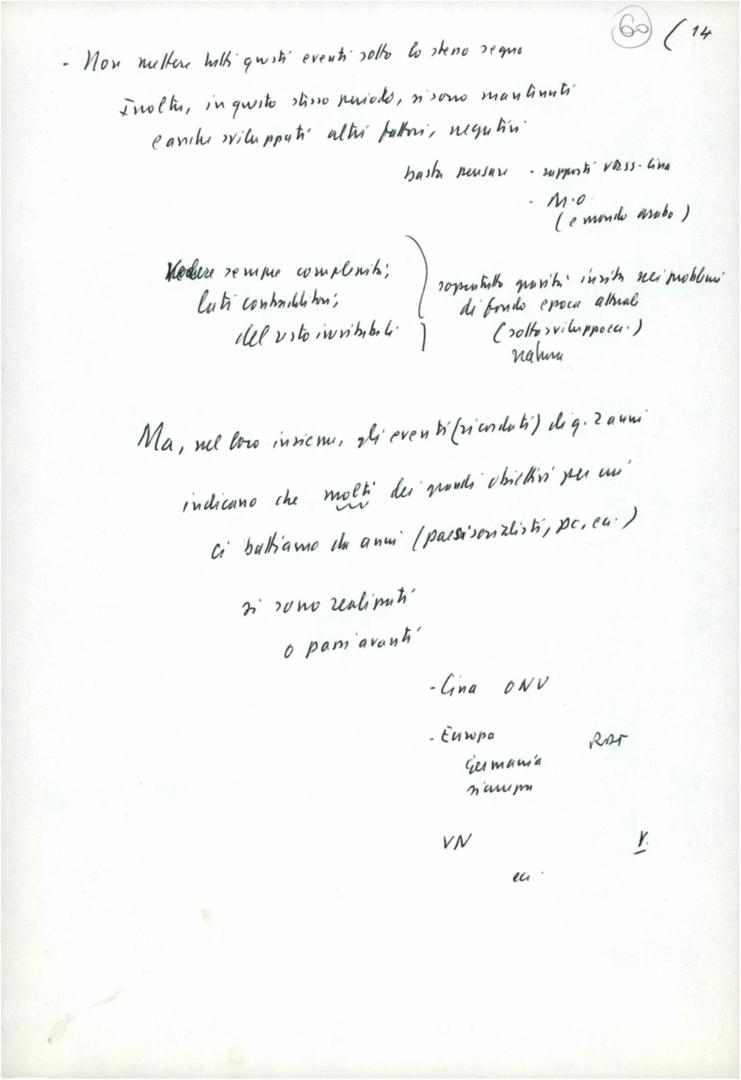 60 (14
- Non mettere tutti questi eventi sotto lo stesso segno
Inoltre, in questo stesso periodo, si sono mantenuti
e anche sviluppati altri fattori, negativi
basta pensare - rapporti URSS-Cina
- M.O.
(e mondo arabo)
Vedere sempre complessità;
lati contraddittori;
del resto inevitabili
soprattutto gravità insita nei problemi
di fondo epoca attuale
(sottosviluppo ecc.)
natura
Ma, nel loro insieme, gli eventi (ricordati) di q. 2 anni
indicano che molti dei grandi obiettivi per cui
ci battiamo da anni (paesi socialisti, pc, ecc.)
si sono realizzati
o passi avanti
- Cina ONU
- Europa RDT
Germania
sicurezza
VN V.
ecc.